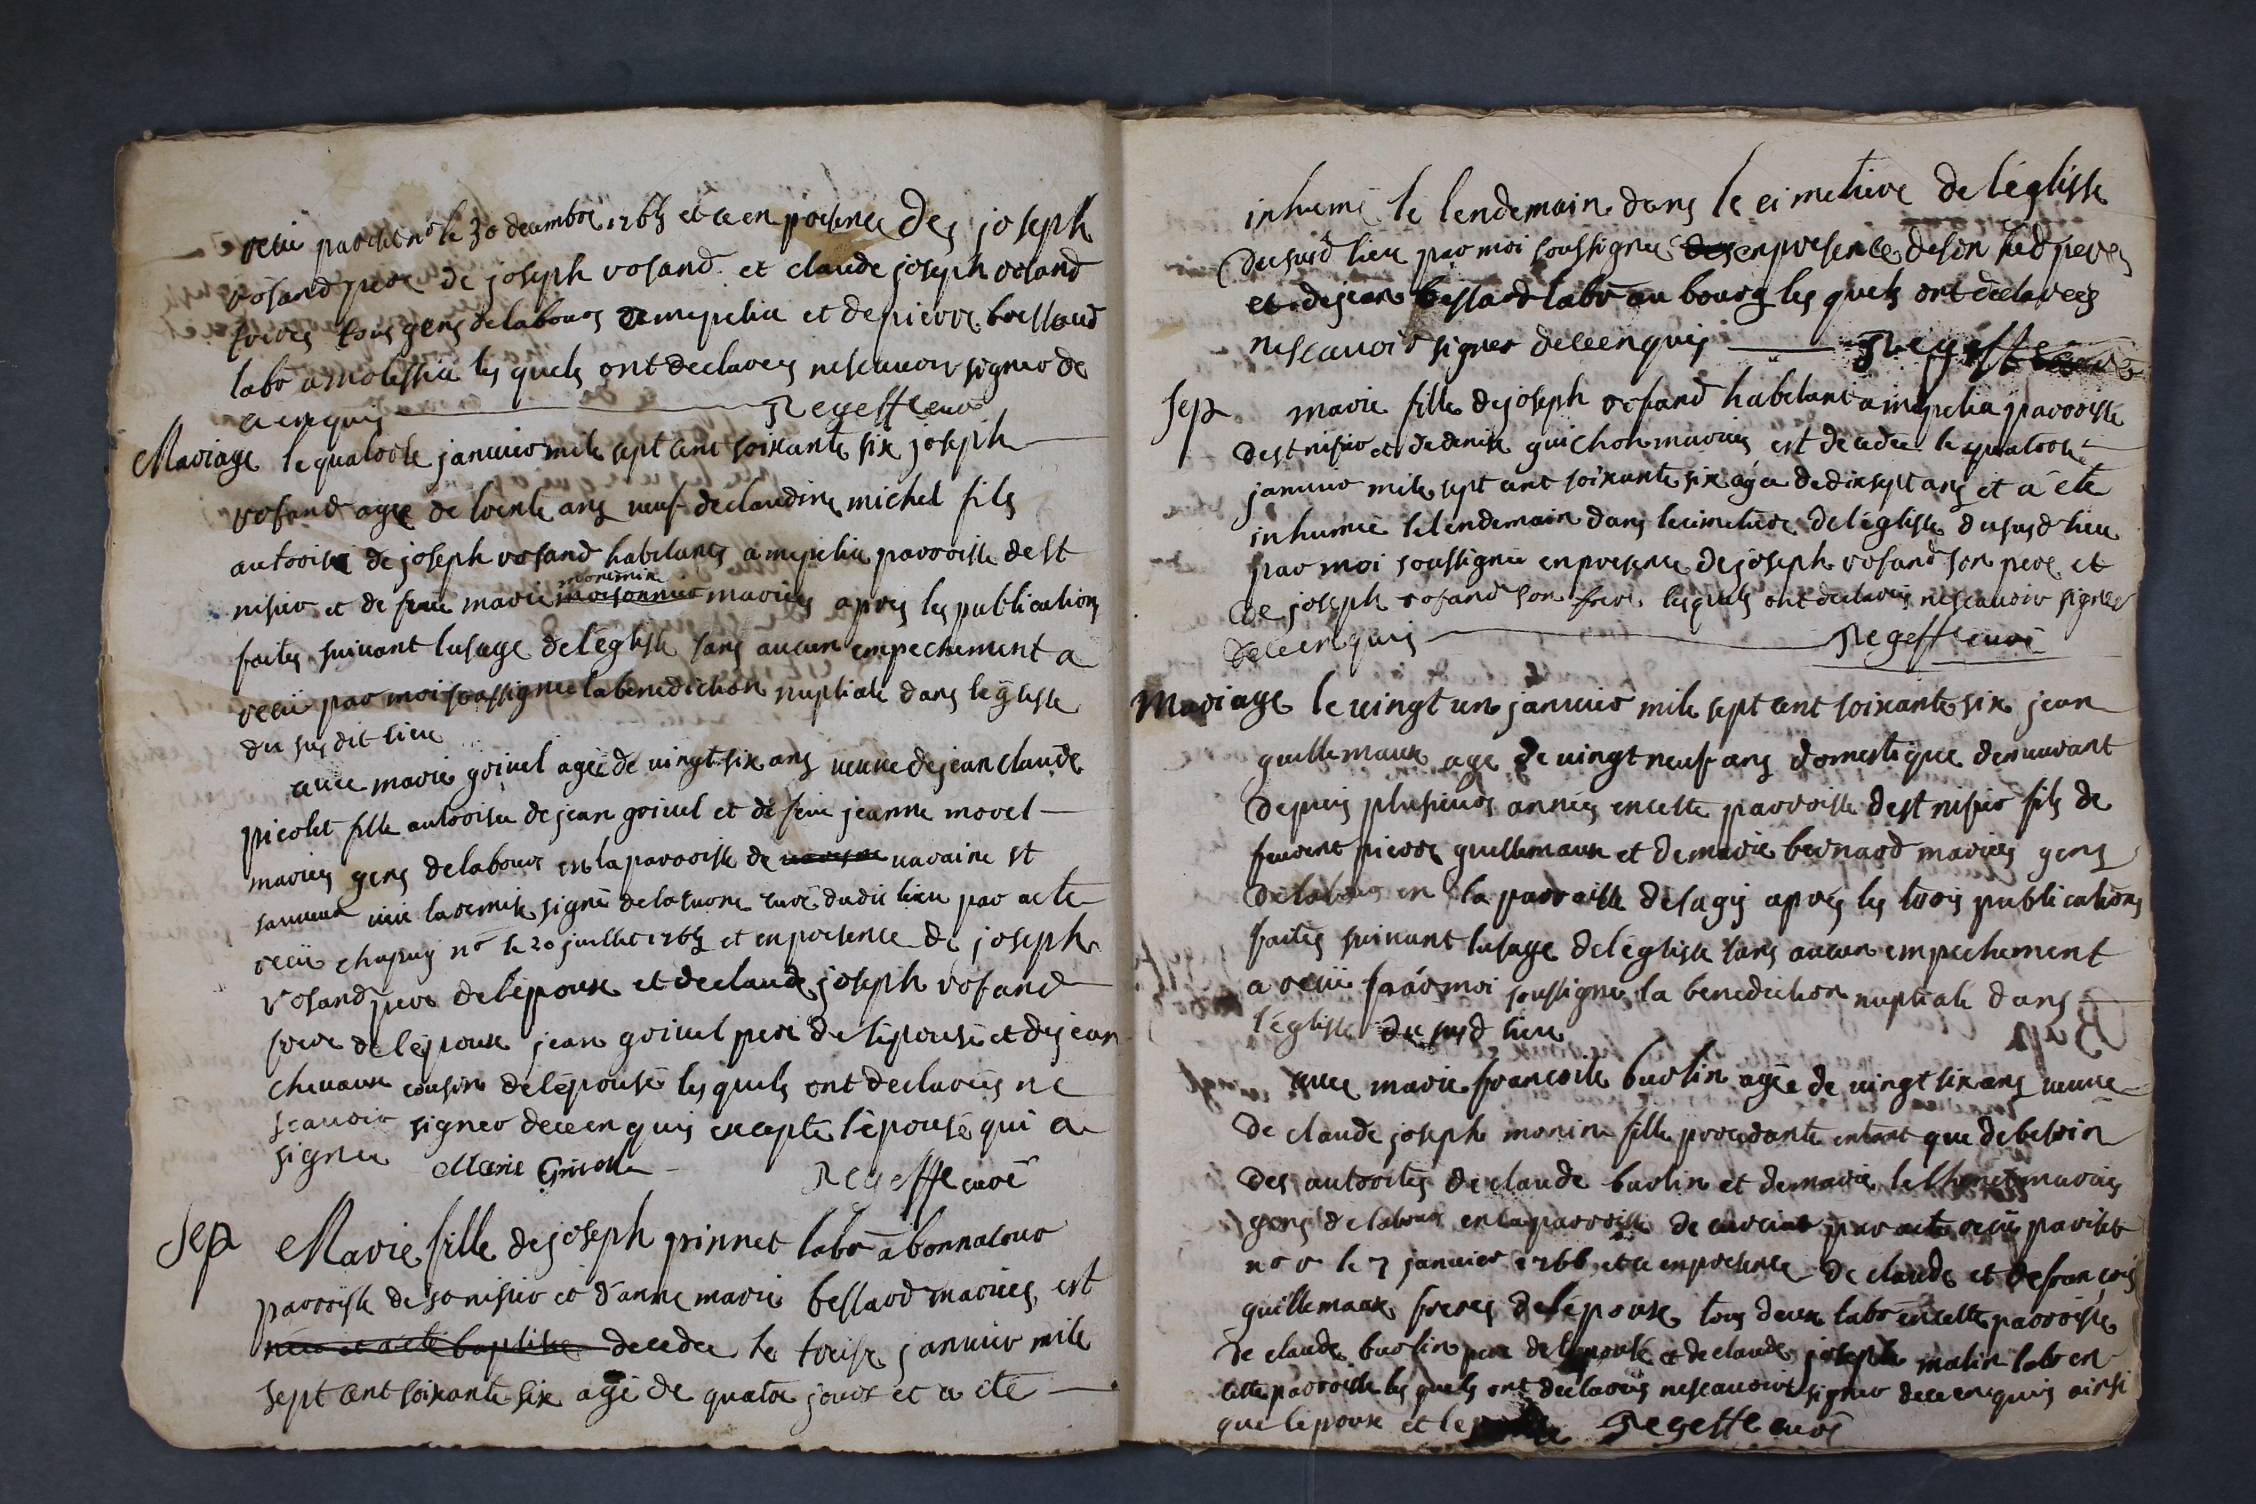 receu par dit nre le 30 decembre 1765 et ce en presence des joseph
rosand pere de joseph rosand et claude joseph rosand
freres tous gens de labour a mepelia et de pierre bressand
labr a molessia les quels ont declarez ne scauoir signer de
ce enquis Regeffe curé
Mariage le quatorse januier mile sept cent soixante six joseph
rosand agee de trente ans ueuf de claudine michel fils
autorisé de joseph rosand habitants a mepelia parroisse de st
monnnin
nisier et de feue marie moisonnier mariés apres les publications
faites suiuant lusage de léglise sans aucun empechement a
receu par moi soussigné la benediction nuptiale dans léglise
du sus dit lieu
auec marie griuel agée de uingt six ans ueuue de jean claude
picolet fille autorisée de jean griuel et de feue jeanne morel
mariés gens de labour en la parroisse de uaraine st
sauueur uue la remise signé delatuone curé dudit lieu par acte
receu chapuy nre le 20 juillet 1765 et en presence de joseph
rosand pere de lépoux et de claude joseph rosand
frere de lépoux jean griuel pere de lépouse et de jean
cheuaux cousin de lépouse les quels ont declarés ne
scauoir signer de ce enquis excepté lépouse qui a
signée Marie Griuelle Regeffe curé
Sep Marie fille de joseph pinnet labr a bonnacour
parroisse de st nisier et d'anne marie bessard mariés est
née et a été baptisée decedee le treise januier mile
sept cent soixante six agé de quatre jours et a été
inhumé le lendemain dans le cimetiere de léglisse
du susd lieu par moi soussigné des en presence de son sud pere
et de jean bessard labr au bourg les quels ont declarees
ne scauoir signer de ce enquis Regeffe curé
Sep marie fille de joseph rosand habitant a mepelia parroisse
de st nisier et de denise guichon mariés est decedee le quatorse
januier mile sept cent soixante six agée de dix sept ans et a été
inhumée le lendemain dans le cimetiere de léglisse du susd lieu
par moi soussigné en presence de joseph rosand son pere et
de joseph rosand son frere lesquels ont declarés ne scauoir signer
de ce enquis Regeffe curé
Mariage le uingt un januier mile sept cent soixante six jean
guillemaux age de uingt neuf ans domestique demeurant
depuis plusieurs années en cette parroisse de st nisier fils de
feuuent pierre guillemaux et de marie bernard mariés gens
de labour en la parroisse de sagy aprés les trois publications
faites suiuant lusage de léglise sans aucun empechement
a receu par moi soussigné la benediction nuptiale dans
léglise du susd lieu
auec marie francoise burlin agée de uingt six ans ueuue
de claude joseph monin fille procedante entant que de besoin
des autorités de claude burlin et de marie mariés
gens de labour en la parroisse de par acte receu
nre le 7 januier 1766 et ce en presence de claude et de françois
guillemaux freres de lépoux tous deux labr en cette parroisse
de claude burlin pere de lépouse et de claude joseph matin labr en
cette parroisse les quels ont declarés ne scauoir signer de ce enquis ainsi
que lépoux et le Regeffe curé